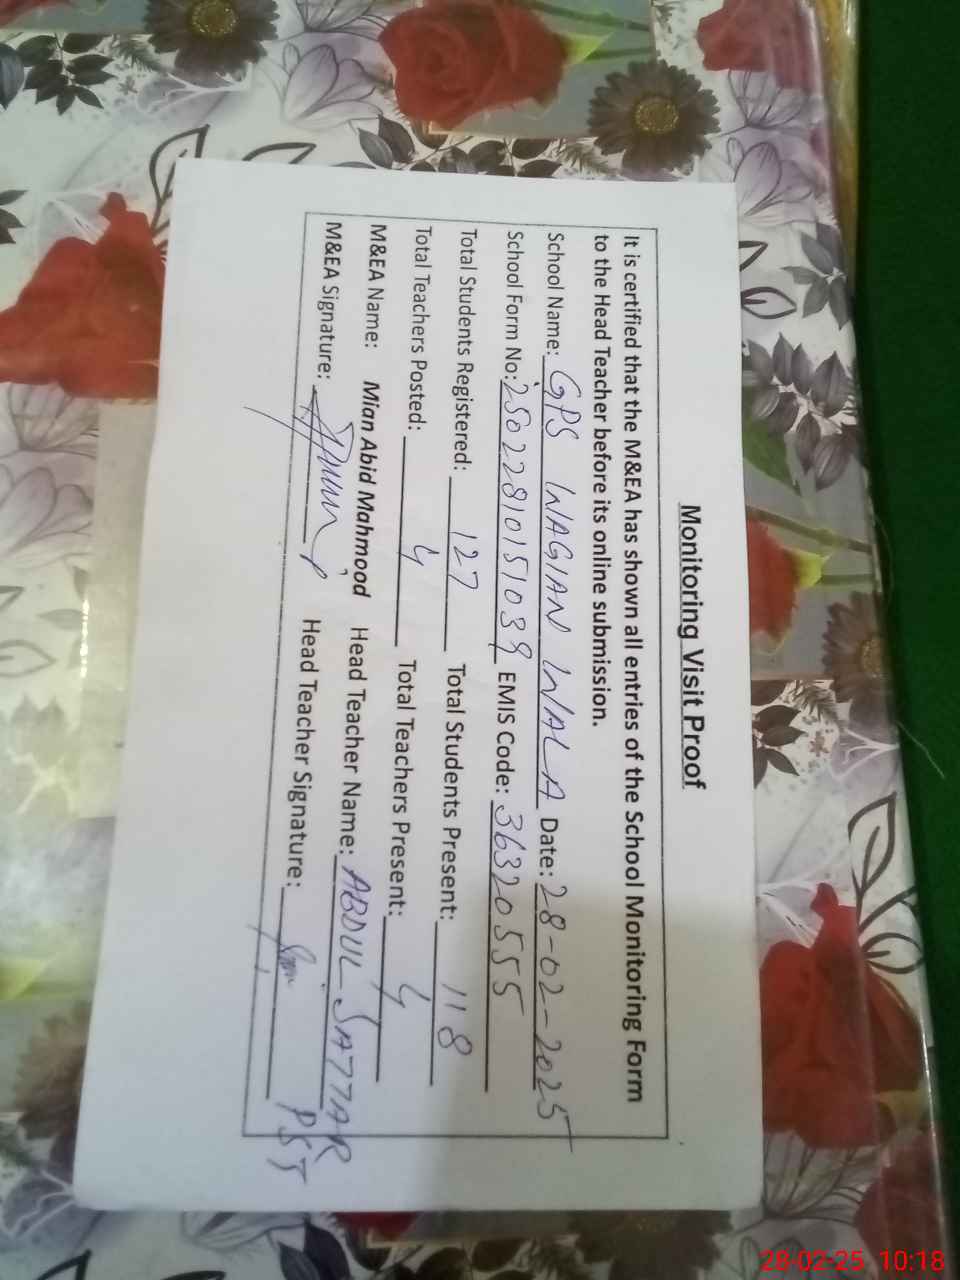 Monitoring Visit Proof
It is certified that the M&EA has shown all entries of the School Monitoring Form
to the Head Teacher before its online submission.
School Name: GPS WAGIAN WALA Date: 28-02-2025
School Form No: 25022810151039 EMIS Code: 36320555
Total Students Registered: 127 Total Students Present: 118
Total Teachers Posted: 4 Total Teachers Present: 4
M&EA Name: Mian Abid Mahmood Head Teacher Name: ABDUL SATTAR
M&EA Signature: Head Teacher Signature: PST
28-02-25 10:18